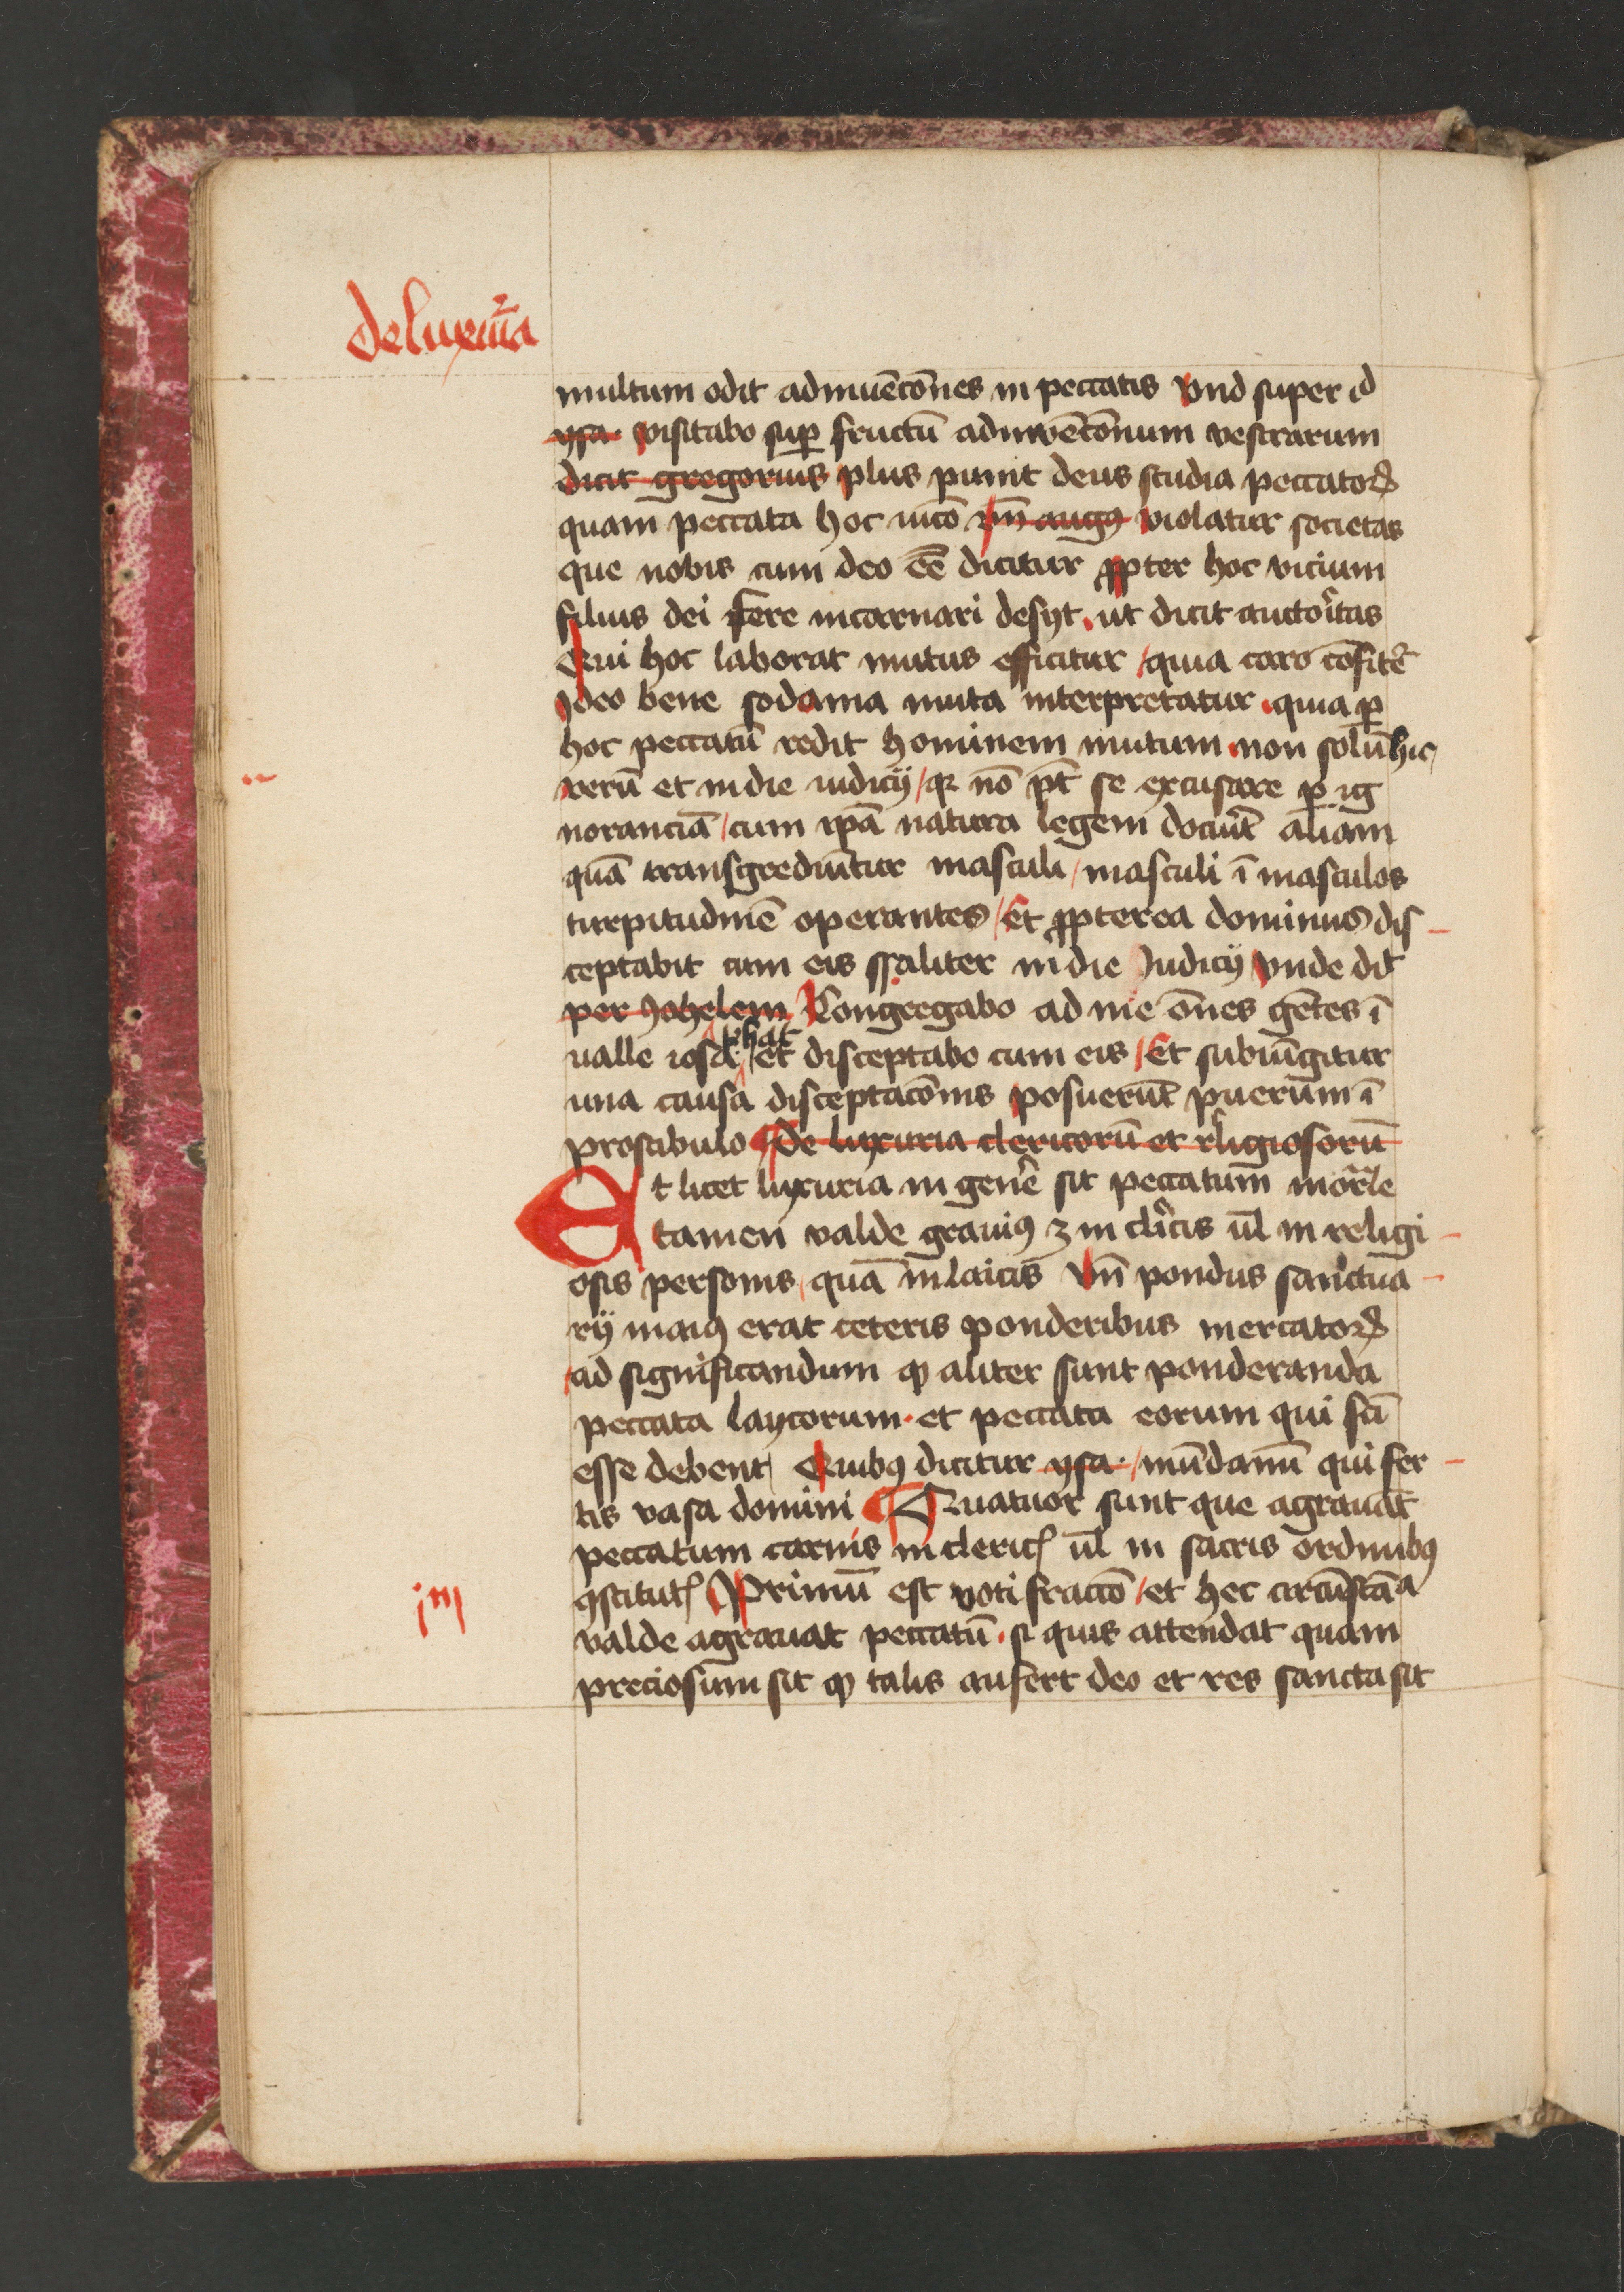 de luxuͥa
multum odit adinuēcōnes in peccatis Vnd super id
ysa. visitabo suꝑ fructū adinvēcōnum vestrarum
dicit gregorius plus punit deus studia peccatoꝝ
quam peccata hoc uico vn̄ augꝰ violatur societas
que nobis cum deo eē dicitur ꝓpter hoc vicium
filius dei fere incarnari desyt. ut dicit auctoͥtas
Qui hoc laborat mutus efficitur / quia raro cōfitet͛
Ideo bene sodoma muta interpretatur . quia ꝑ
hoc peccatū redit hominem mutum . non solū hic
verū et in die iudicij / qꝛ nō pt̄ se excusare ꝑ ig
noranciā / cum ip̄a natura legem docu͛it aliam
quā transgrediūtur masculi / masculi ī masculos
turpitudinē operantes / Et ꝓpterea dominus dis
ceptabit cum eis sp̄aliter in die Iudicij vnde dit͛
per Johelem Congregabo ad me om̄es gētes ī
ualle iosa phat et disceptabo cum eis / Et subiūgitur
una causa disceptacōnis posuerūt puerum ī
prostibulo ¶ De luxuria clericorū et religiosorū
Et licet luxuria in gen͛e sit peccatum mor͛tale
tamen valde grauiꝰ ꝫ in cl͛icis ul̄ in religi
osis personis / quā in laicis Vn̄ pondus sanctua
rij maiꝰ erat ceteris ponderibus mercatoꝝ
/ ad significandum ꝙ aliter sunt ponderanda
peccata laycorum . et peccata eorum qui sc̄i
esse debent / Quibꝰ dicitur ysa . / mūdamī qui fer
tis vasa domini ¶ Quatuor sunt que agrauāt
peccatum carnis in clericꝭ ul̄ in sacris ordinibꝰ
ꝯstitutꝭ Primū est voti fraccō / et hec circūstāᵃ
valde agrauat peccatū . si quis attendat quam
preciosum sit ꝙ talis aufert deo et res sancta sit